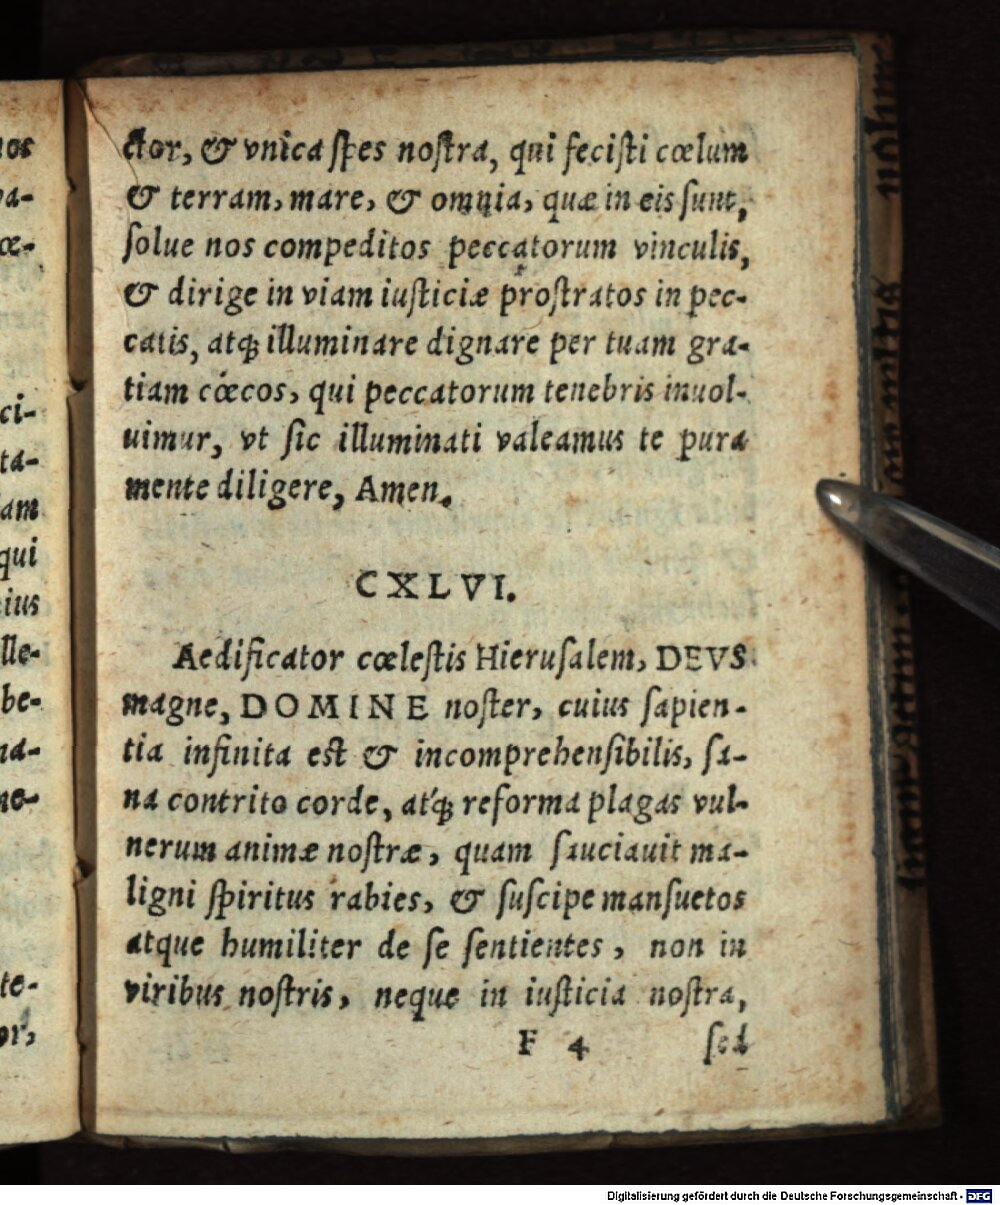 nos
va-
œ-
ci-
ta-
am
qui
ius
lle-
be-
na-
ne-
te-
or,
ctor, & vnica ſpes noſtra, qui feciſti cœlum
& terram, mare, & omnia, quæ in eis ſunt,
ſolue nos compeditos peccatorum vinculis,
& dirige in viam iuſticiæ proſtratos in pec-
catis, atq; illuminare dignare per tuam gra-
tiam cœcos, qui peccatorum tenebris inuol-
uimur, vt ſic illuminati valeamus te pura
mente diligere, Amen.
CXLVI.
Aedificator cœleſtis Hieruſalem, DEVS
magne, DOMINE noſter, cuius ſapien-
tia infinita eſt & incomprehenſibilis, ſa-
na contrito corde, atq; reforma plagas vul-
nerum animæ noſtræ, quam ſauciauit ma-
ligni ſpiritus rabies, & ſuſcipe manſuetos
atque humiliter de ſe ſentientes, non in
viribus noſtris, neque in iuſticia noſtra,
F 4 ſed
Digitalisierung gefördert durch die Deutsche Forschungsgemeinschaft - DFG